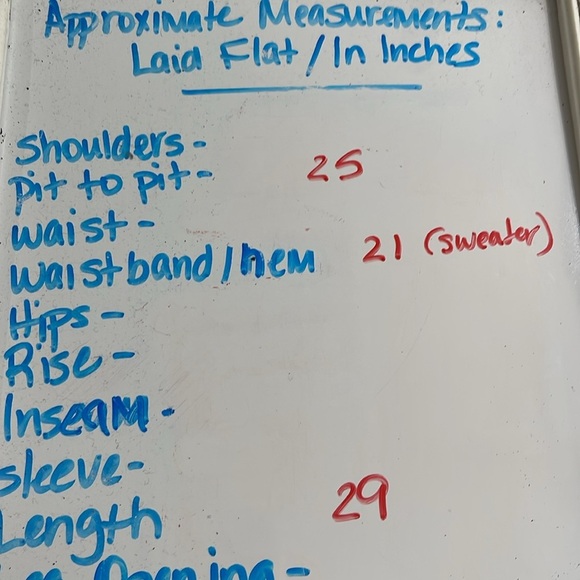 Approximate Measurements:
Laid Flat / In Inches
Shoulders -
pit to pit - 25
waist -
waistband / hem 21 (sweater)
Hips -
Rise -
Inseam -
sleeve -
Length 29
Opening -